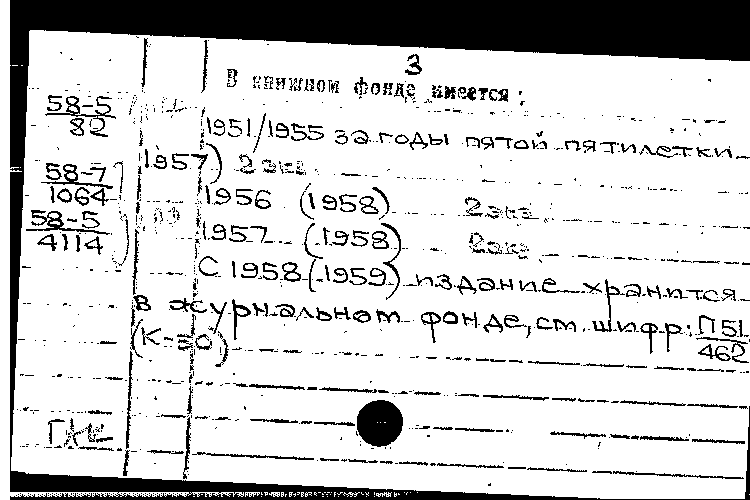 3
В книжном фонде имеется:
58-5
82
1951/1955 за годы пятой пятилетки
1957) 2 экз.
58-7
1064
1956 (1958) 2 экз.
58-5
4114
1957 (1958) 2 экз.
С 1958 (1959) издание хранится
в журнальном фонде, см. шифр: П51
462